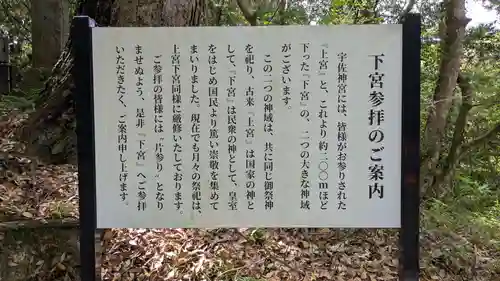 下宮参拝のご案内
宇佐神宮には、皆様がお参りされた
『上宮』と、これより約二〇〇mほど
下った『下宮』の、二つの大きな神域
がございます。
この二つの神域は、共に同じ御祭神
を祀り、古来『上宮』は国家の神と
して、『下宮』は民衆の神として、皇室
をはじめ国民の皆様より篤い崇敬を集めて
まいりました。現在でも月々の祭祀は、
上宮下宮同様に厳修いたしております。
ご参拝の皆様には〝片参り〟となり
ませぬよう、是非『下宮』へご参拝
いただきたく、ご案内申し上げます。